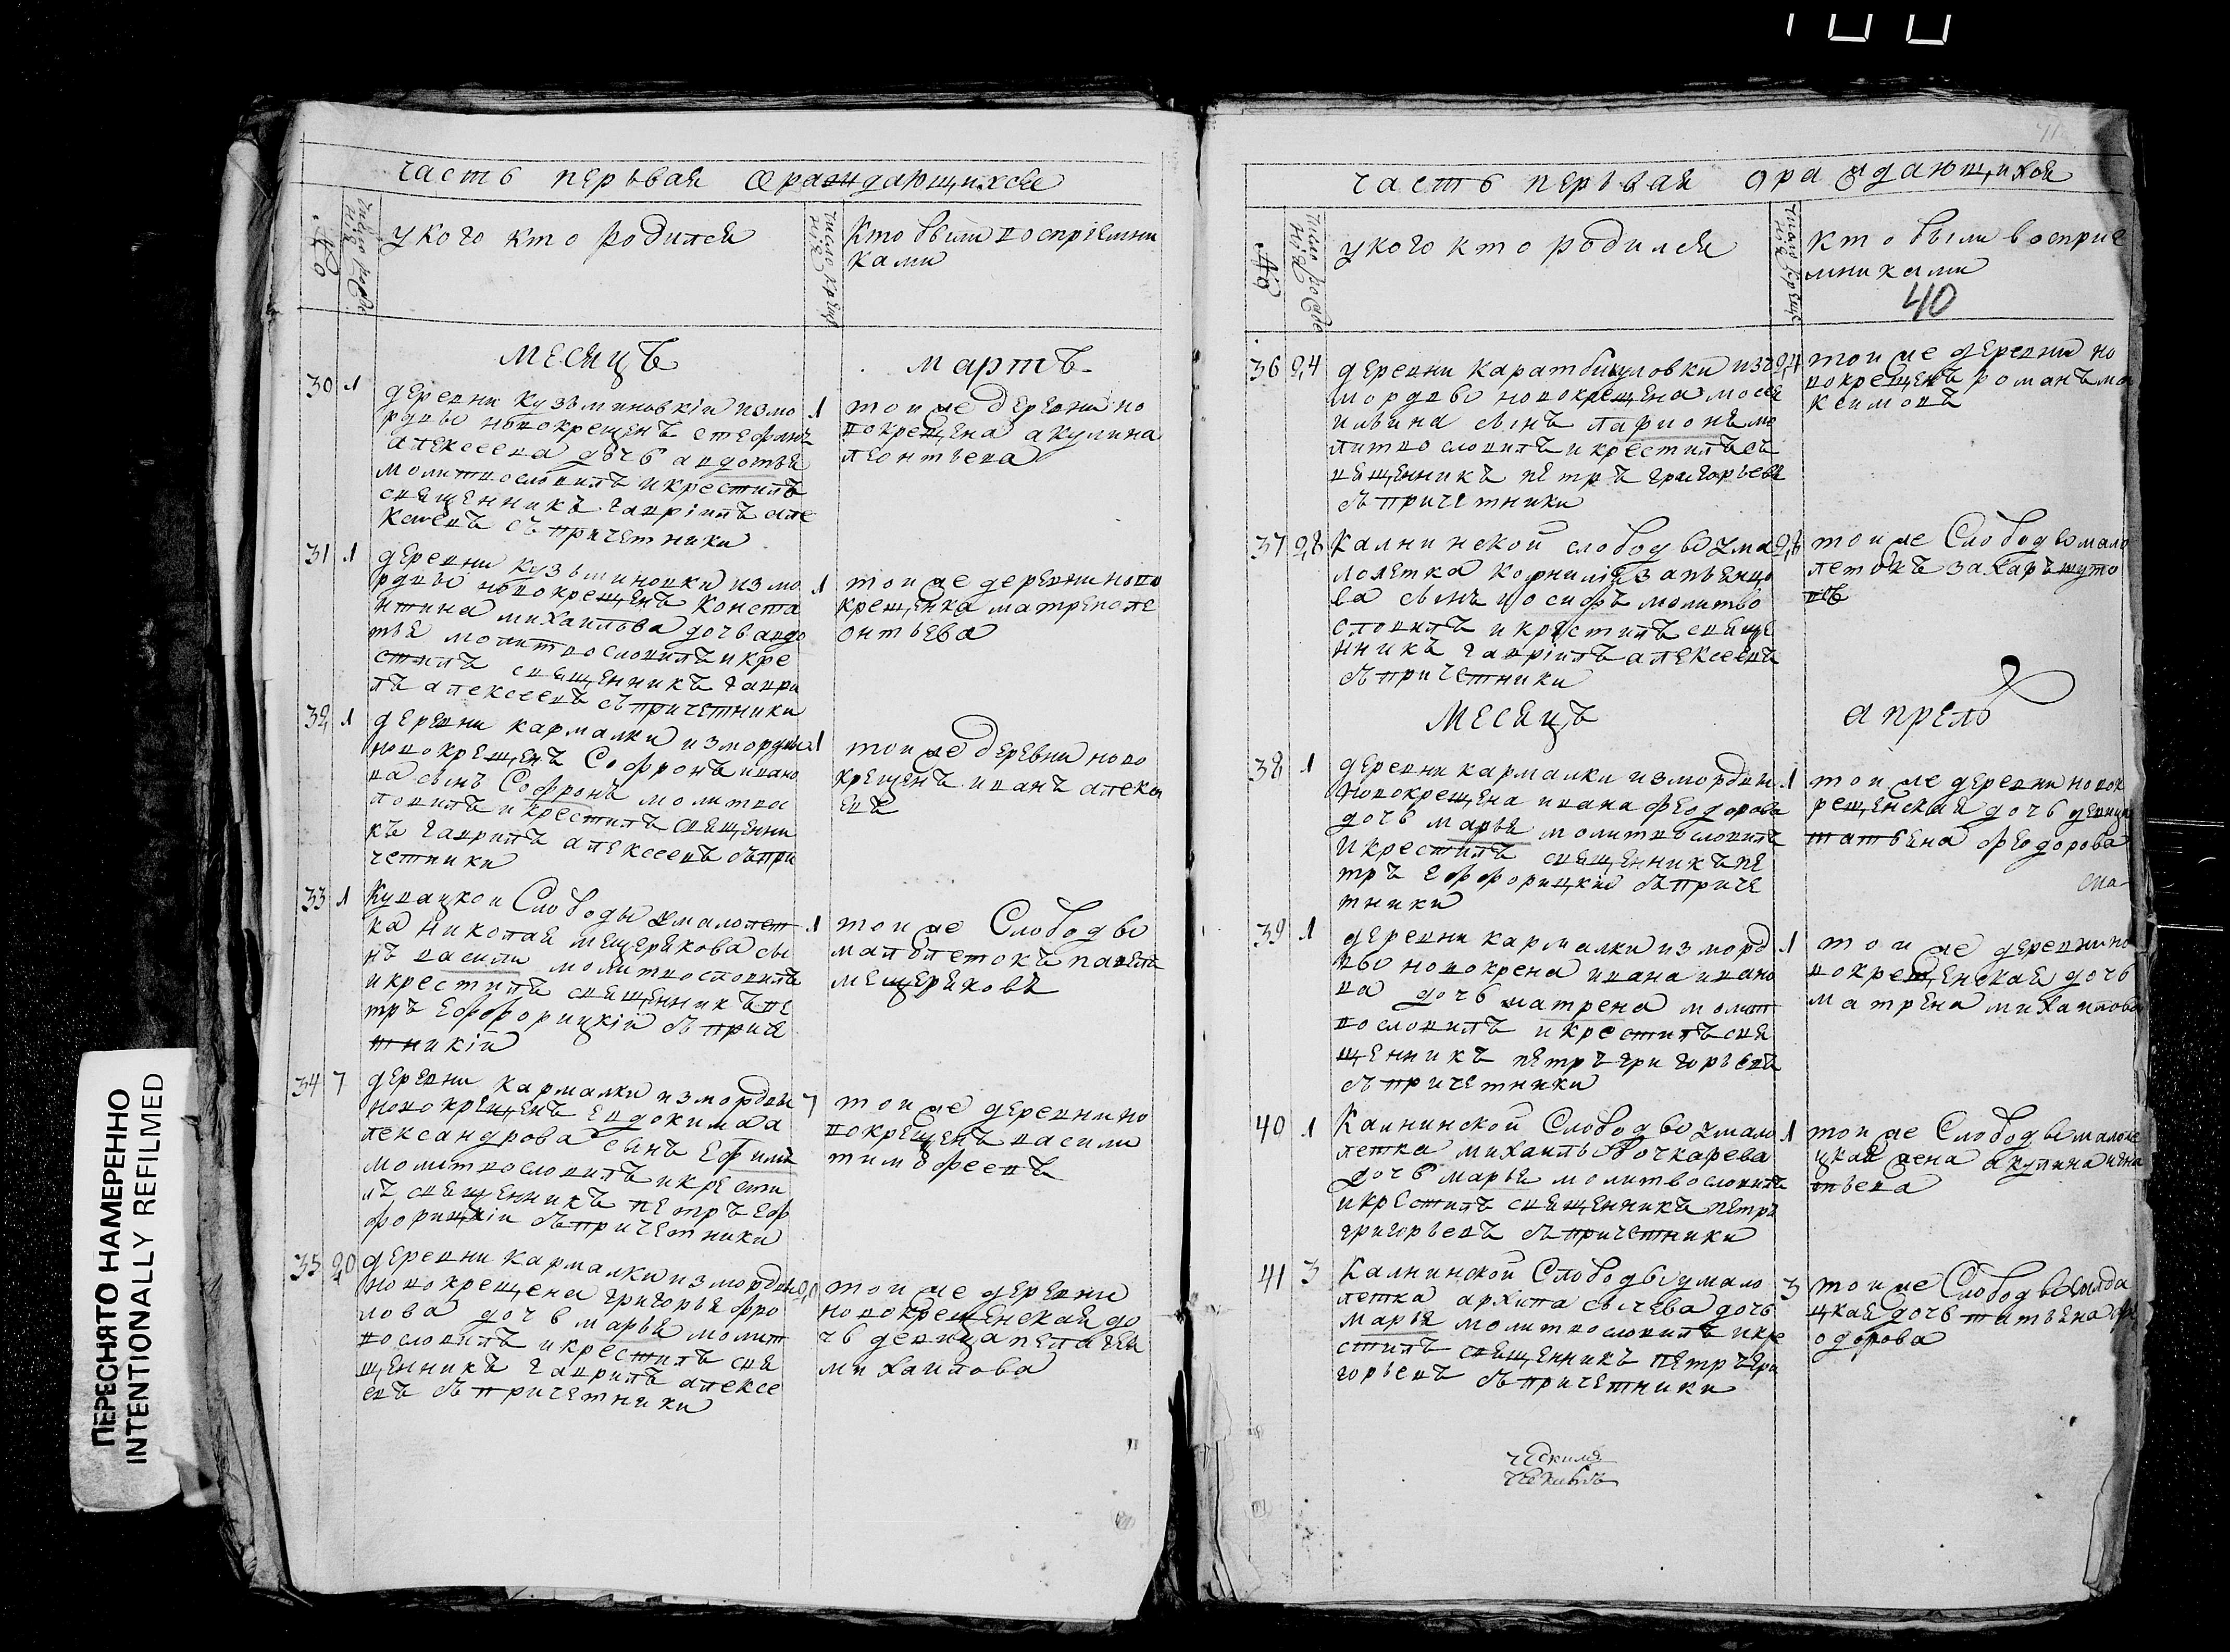 часть первая ораждающихся
№
число рожде
нія
у кого кто родился
число креще
нія
кто были восприемни
ками
месяцъ
мартъ
30
1
деревни кузьминовкіи измо
рдвы новокрещенъ стефанъ
алексеева дочь авдотья
молитвословилъ и крестилъ
священникъ гавріилъ але
ксеевъ съ причетники
1
тои же деревни но
вокрещена акулина
леонтьева
31
1
деревни кузьминовки измо
рдвы новокрещенъ конста
нтина михаилова дочь авдо
тья молитвословилъ и кре
стилъ священникъ гаври
лъ алексеевъ съ причетники
1
тои же деревни ново
крещенка матрена ле
онтьева
32
1
деревни кармалки измордвы
новокрещенъ Софронъ ивано
ва сынъ Софронъ молитвос
ловилъ и крестилъ священни
къ гаврилъ алексеевъ съ при
четники
1
тои же деревни ново
крещенъ иванъ алексе
евъ
33
1
Кувацкои Слободы у малолет
ка николая мещерякова сы
нъ василии молитвословилъ
и крестилъ священникъ пе
тръ Ефорицкіи съ приче
тникіи
1
тои же Слободы
малолетокъ павелъ
мещеряковъ
34
7
деревни кармалки измордвы
новокрещенъ евдокима а
лександрова сынъ Ефимъ
молитвословилъ и крести
лъ священникъ петръ еф
форицкіи съ причетники
7
тои же деревни но
вокрещенъ васили
тимофеевъ
35
20
деревни кармалки измордвы
новокрещена григорья фро
лова дочь марья молит
вословилъ и крестилъ свя
щенникъ гаврилъ алексе
евъ съ причетники
20
тои же деревни
новокрещенская до
чь девица пелагея
михаилова
часть первая ораждающихся
№
число рожде
нія
у кого кто родился
число креще
нія
кто были восприе
мниками
40
36
24
деревни каратбиуловки изъ
мордвы новокрещена мосея
ильина сынъ ларионъ мо
литвословилъ и крестилъ с
вященникъ петръ григорьевъ
съ причетники
24
тои же деревни но
вокрещенъ романъ ма
ксимовъ
37
28
Калнинской слободы у ма
лолетка корниліа запьянцо
ва сынъ иосифъ молитво
словилъ и крестилъ священ
нникъ гавріилъ алексеевъ
съ причетники
28
тои же Слободы мало
летокъ захаръ шуто
въ
месяцъ
апрель
38
1
деревни кармалки измордвы
новокрещена ивана феодорова
дочь марья молитвословилъ
и крестилъ священникъ пе
тръ ефорицкіи съ приче
тники
1
тои же деревни новок
рещенская дочь девица
татьяна феодорова
39
1
деревни кармалки изморд
вы новокрена ивана ивано
ва дочь матрена молит
вословилъ и крестилъ свя
щенникъ петръ григорьевъ
съ причетники
1
тои же деревни но
вокрещенская дочь
матрена михаилова
40
1
Калнинской Слободы у мало
летка михаилы бочкарева
дочь марья молитвословилъ
и крестилъ священникъ петръ
григорьевъ съ причетники
1
тои же Слободы малоле
цкая жена акулина игна
тьева
41
3
Калнинской Слободы у мало
летка архипа сычева дочь
марья молитвословилъ и кре
стилъ священникъ петръ гри
горьевъ съ причетники
3
тои же Слободы солда
цкая дочь татьяна фе
одорова
ПЕРЕСНЯТО НАМЕРЕННО
INTENTIONALLY REFILMED